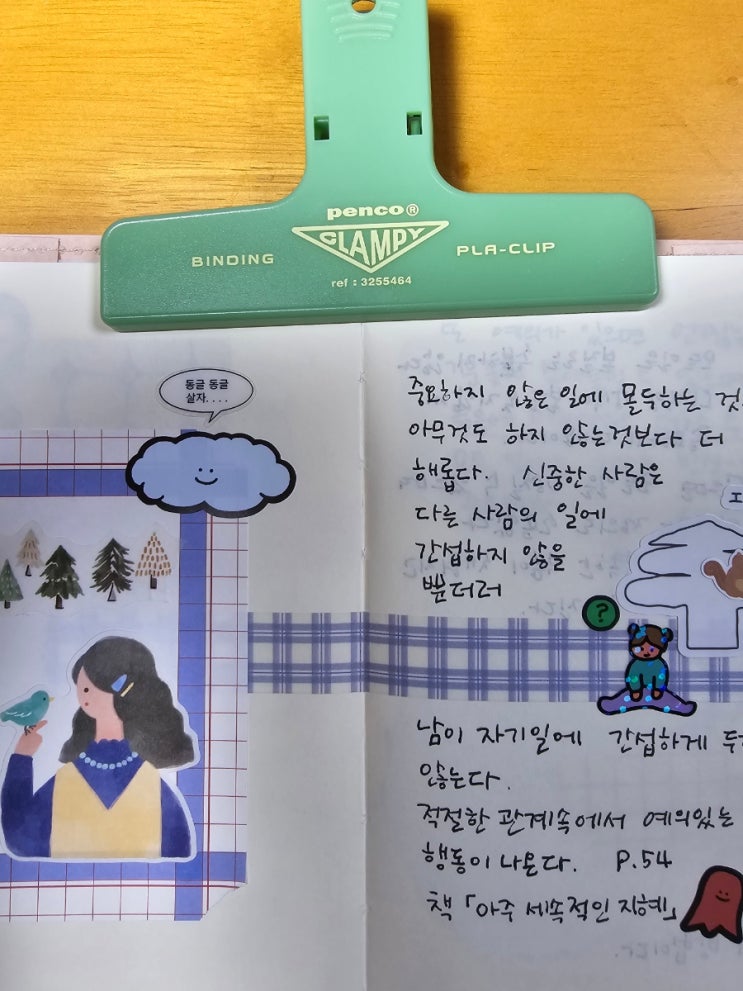 penco®
CLAMPY
BINDING PLA-CLIP
ref : 3255464
동글 동글
살자....
중요하지 않은 일에 몰두하는 것
아무것도 하지 않는것보다 더
해롭다. 신중한 사람은
다른 사람의 일에
간섭하지 않을
뿐더러
?
남이 자기일에 간섭하게 두
않는다.
적절한 관계속에서 예의있는
행동이 나온다. P.54
책 「아주 세속적인 지혜」